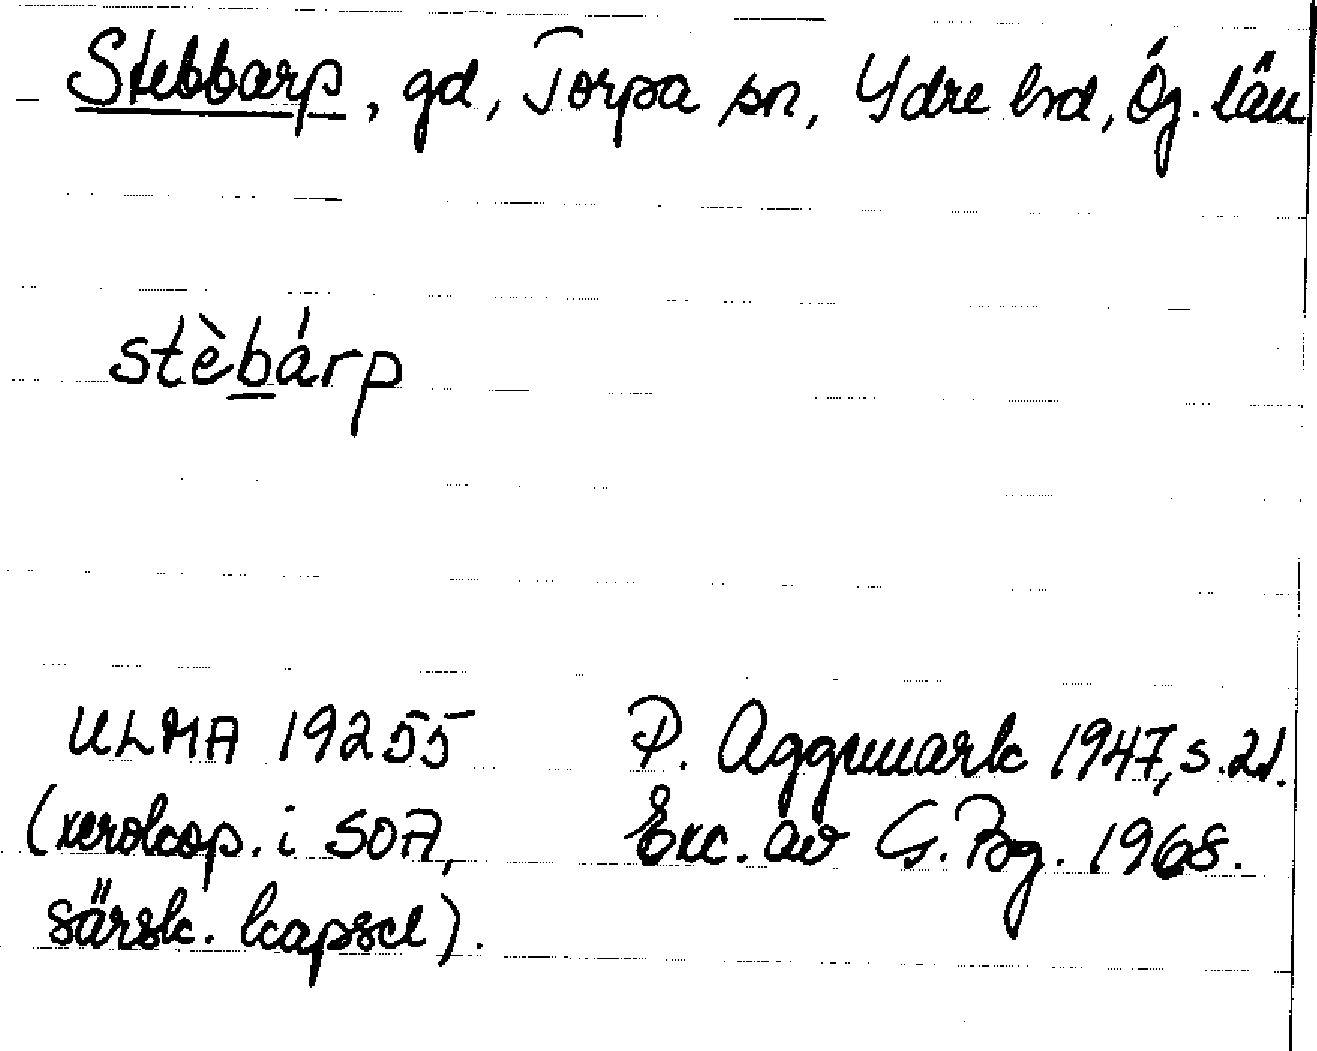 Stebbarp, gd, Torpa sn, Ydre hd, Ög. län
stèbárp
ULMA 19255 P. Aggmark 1947, s. 21.
(xerokop. i SOA, Exc. av G. Bg. 1968.
särsk. kapsel).